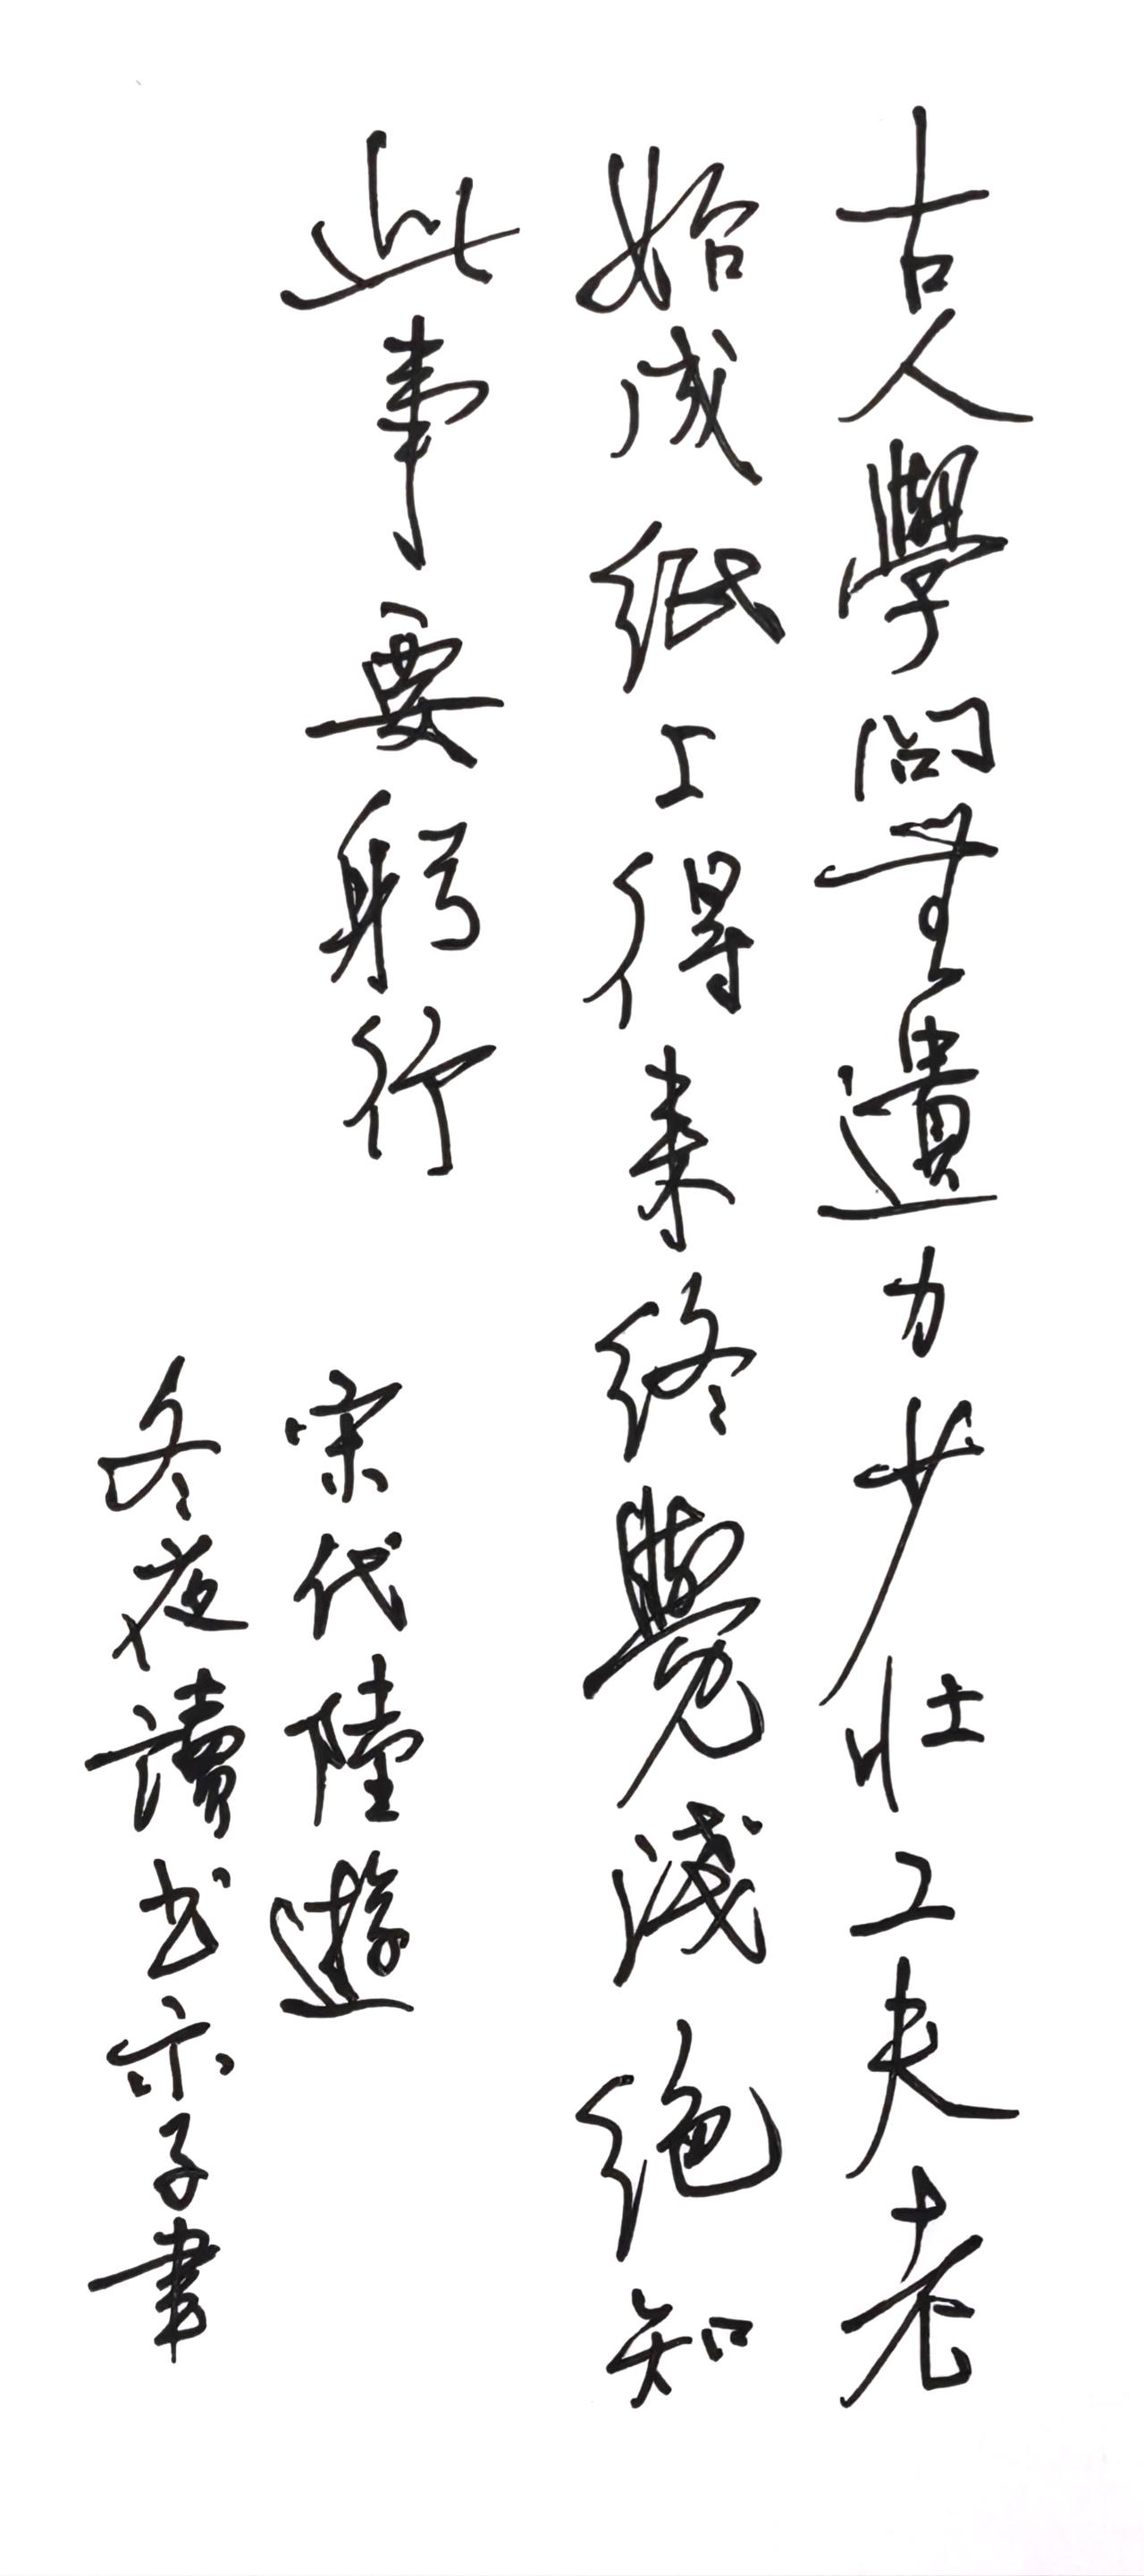 古人學問無遺力少壯工夫老
始成紙上得来終覺淺絕知
此事要躬行
宋代陸遊
冬夜讀书示子書